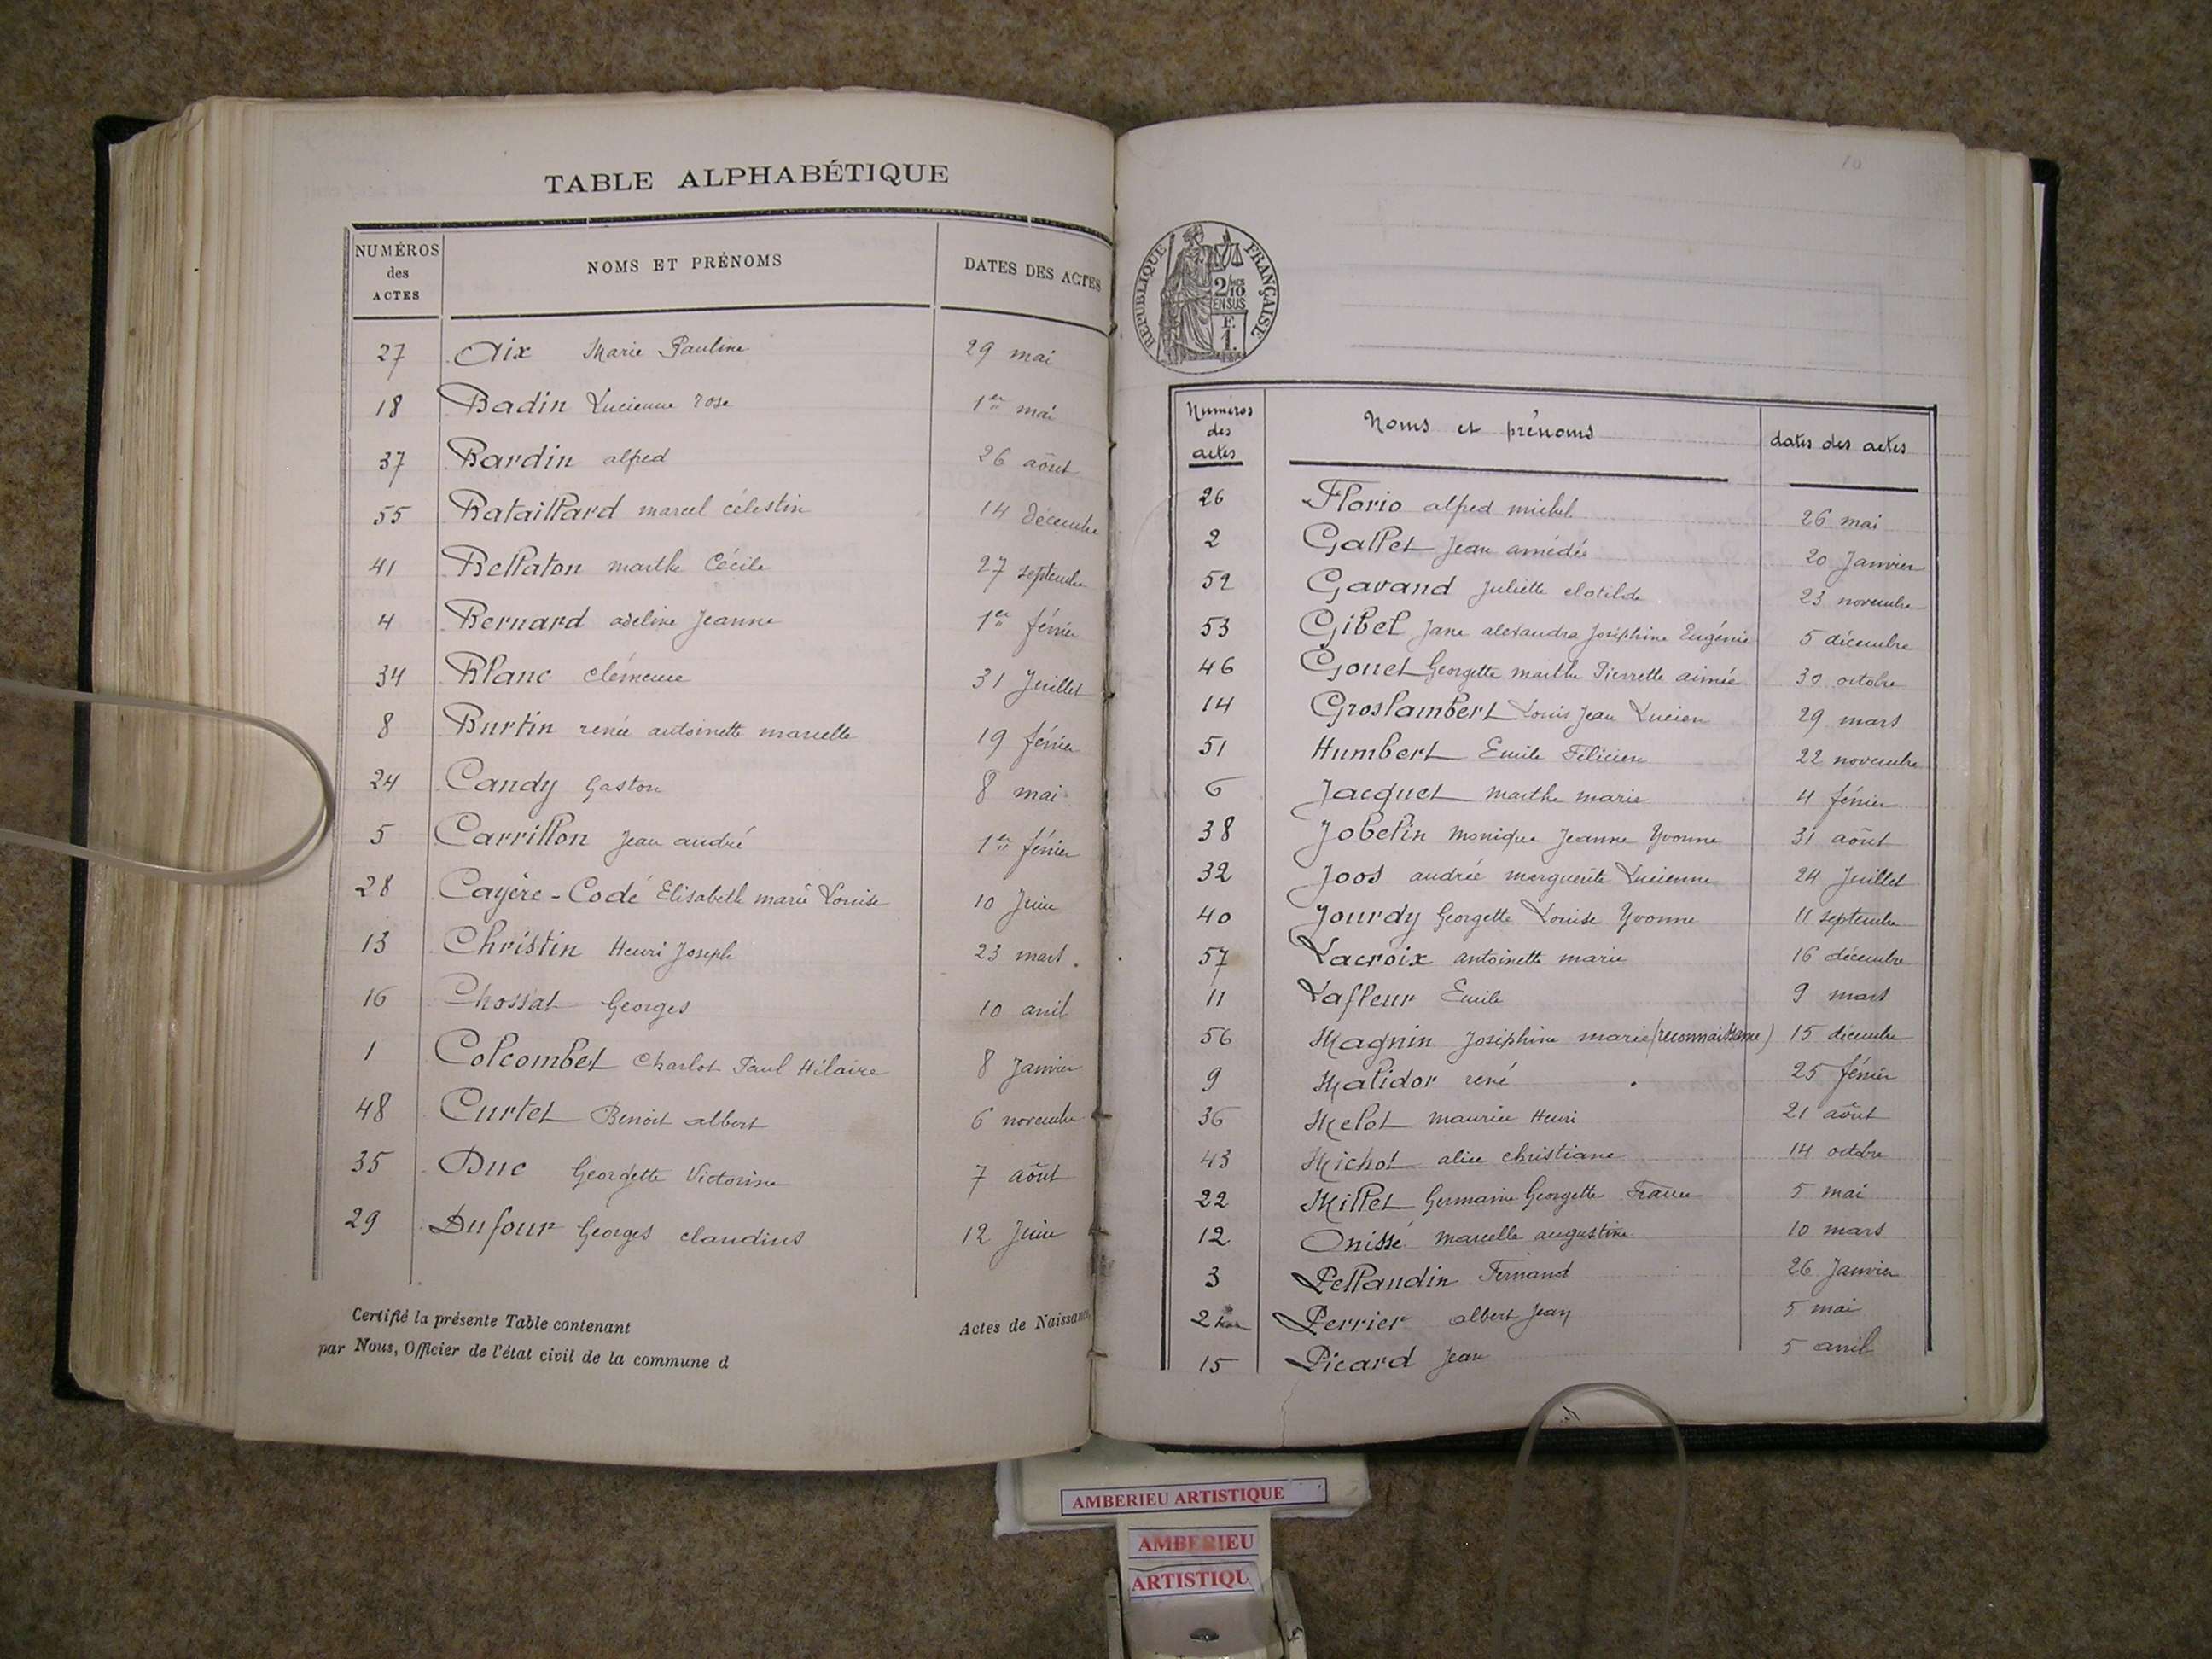 TABLE ALPHABÉTIQUE
NUMÉROS des ACTES NOMS ET PRÉNOMS DATES DES ACTES
27 Aix Marie Pauline 29 mai
18 Badin Lucienne rose 1er mai
37 Bardin alfred 26 août
55 Bataillard marcel célestin 14 décembre
41 Bellaton marthe Cécile 27 septembre
4 Bernard adeline Jeanne 1er février
34 Blanc clémence 31 Juillet
8 Burtin renée antoinette marcelle 19 février
24 Candy Gaston 8 mai
5 Carrillon Jean andré 1er février
28 Cayère-Codé Elisabeth marie Louise 10 Juin
13 Christin Henri Joseph 23 mars
16 Chossat Georges 10 avril
1 Colcombet Charlot Paul Hilaire 8 Janvier
48 Curtet Benoit albert 6 novembre
35 Duc Georgette Victorine 7 août
29 Dufour Georges claudius 12 Juin
Certifié la présente Table contenant Actes de Naissance
par Nous, Officier de l'état civil de la commune d
10
RÉPUBLIQUE FRANÇAISE
2/10
EN SUS
F.
1.
Numéros des actes Noms et prénoms dates des actes
26 Florio alfred michel 26 mai
2 Gallet Jean amédée 20 Janvier
52 Gavand Juliette clotilde 23 novembre
53 Gibel Jane alexandra Joséphine Eugénie 5 décembre
46 Gonet Georgette marthe Pierrette aimée 30 octobre
14 Groslambert Louis Jean Lucien 29 mars
51 Humbert Emile Félicien 22 novembre
6 Jacquet marthe marie 4 février
38 Jobelin monique Jeanne Yvonne 31 août
32 Joos andrée marguerite Lucienne 24 Juillet
40 Jourdy Georgette Louise Yvonne 11 septembre
57 Lacroix antoinette marie 16 décembre
11 Lafleur Emile 9 mars
56 Magnin Joséphine marie (reconnaissance) 15 décembre
9 Malidor rené 25 février
36 Melot maurice Henri 21 août
43 Michot alice christiane 14 octobre
22 Millet Germaine Georgette France 5 mai
12 Onissé marcelle augustine 10 mars
3 Pellaudin Fernand 26 Janvier
Perrier albert Jean 5 mai
15 Picard Jean 5 avril
AMBERIEU ARTISTIQUE
AMBERIEU
ARTISTIQU